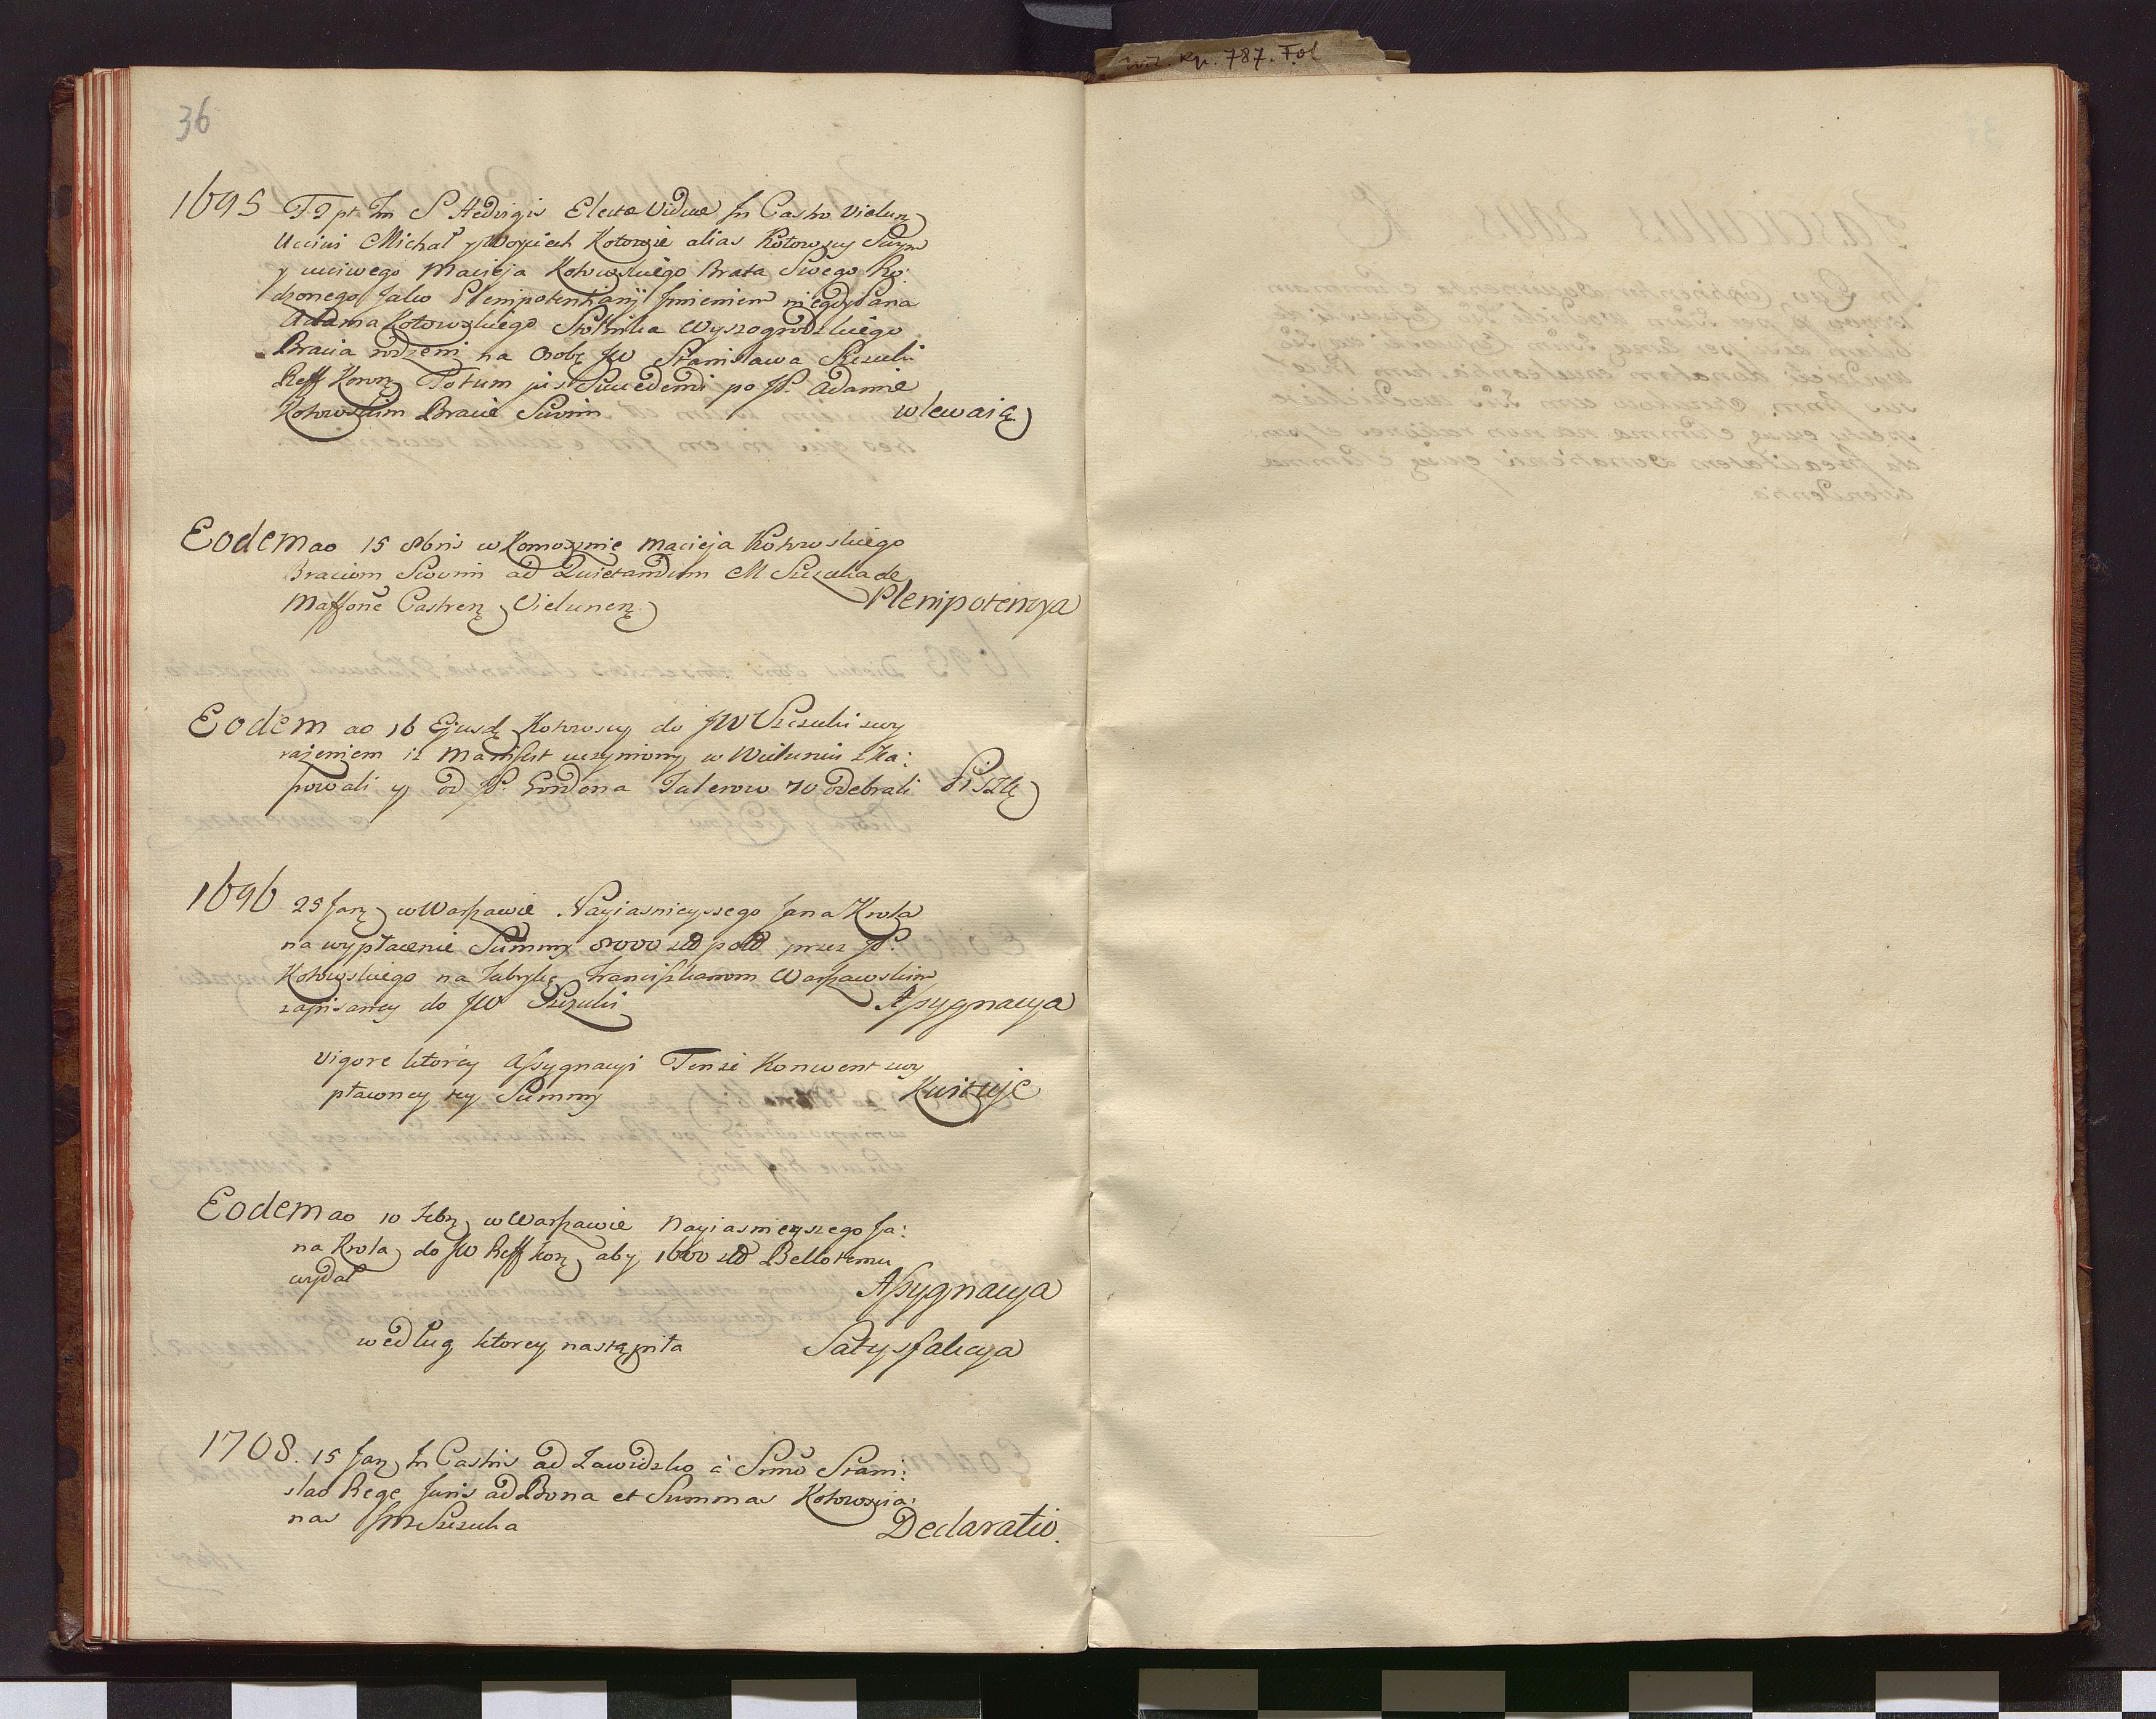 36
1695 F. 2 pt Fm S Hedvigis Electæ Viduæ In Castro Vielun
Ucciwi Michał y Woyciech Kotowsie alias Kotowscy Swym
y ucciwego Macieja Kotowskiego Brata Swego Ro:
dzonego Jako Plenipotentiarij Jmieniem niegdy Pana
Adama Kotowskiego Stolnika Wyszogrodzkiego
Bracia rodzeni na Osobę JW Stanisława Szczuki
Reff Koron Totum jus Succedendi po JP. Adamie
Kotowskim Bracie Swoim wlewaią
Eodem ao 15 8bris w Komosznie Macieja Kotowskiego
Braciom Swoim ad Quietandum M Szczuka de
Maſſone Castren Vielunen Plenipotencya
Eodem ao 16 Ejusd Kotowscy do JW Szczuki z wy
rażeniem iż Manifest uczyniony w Wieluniu ska:
sowali y od JP. Gordona Talerow 70 odebrali Piszą
1696 25 Jan w Warszawie Nayiasnieyszego Jana Krola
na wypłacenie Summy 8000 zło pols przez JP.
Kotowskiego na Fabrykę Franciszkanom Warszawskim
zapisaney do JW Szczuki Aſsygnacya
Vigore ktorey Aſsygnacyi Tenże Konwent z wy
płaconey tey Summy Kwituje
Eodem ao 10 Febr w Warszawie Nayiasnieyszego Ja:
na Krola do JW Reff Kor aby 1600 zło Bellotemu
wydał Aſsygnacya
według ktorey nastąpiła Satysfakcya
1708. 15 Jan In Castris ad Zawidzko à Smo Stani:
slao Rege Juris ad Bona et Summas Kotowscia:
nas Jm Szczuka Declaratio.
787. Fol